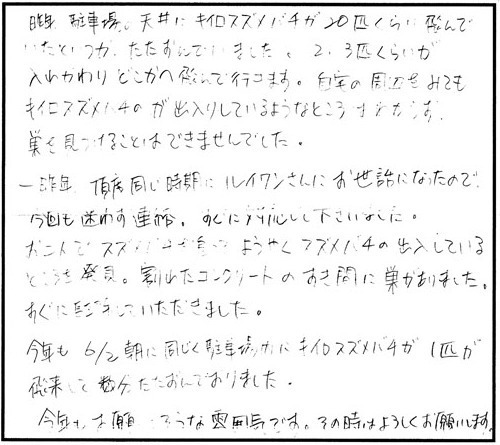 昨年 駐車場の天井にキイロスズメバチが20匹くらい飛んで
いたというか、たたずんでいました。2、3匹くらいが
入れかわりどこかへ飛んで行きます。自宅の周辺をみても
キイロスズメバチの が出入りしているようなところ
巣を見つけることはできませんでした。
一昨年 頂度同じ時期に ルイワンさんにお世話になったので、
今回も迷わず連絡、すぐに対応して下さいました。
スズメバチ ようやくスズメバチの出入している
ところを発見。割れたコンクリートのすき間に巣がありました。
すぐに していただきました。
今年も 6/2 朝に同じく駐車場 にキイロスズメバチが 1匹が
飛来して 数分たたずんでおりました。
今年も お願 そうな雰囲気です。その時はよろしくお願いします。